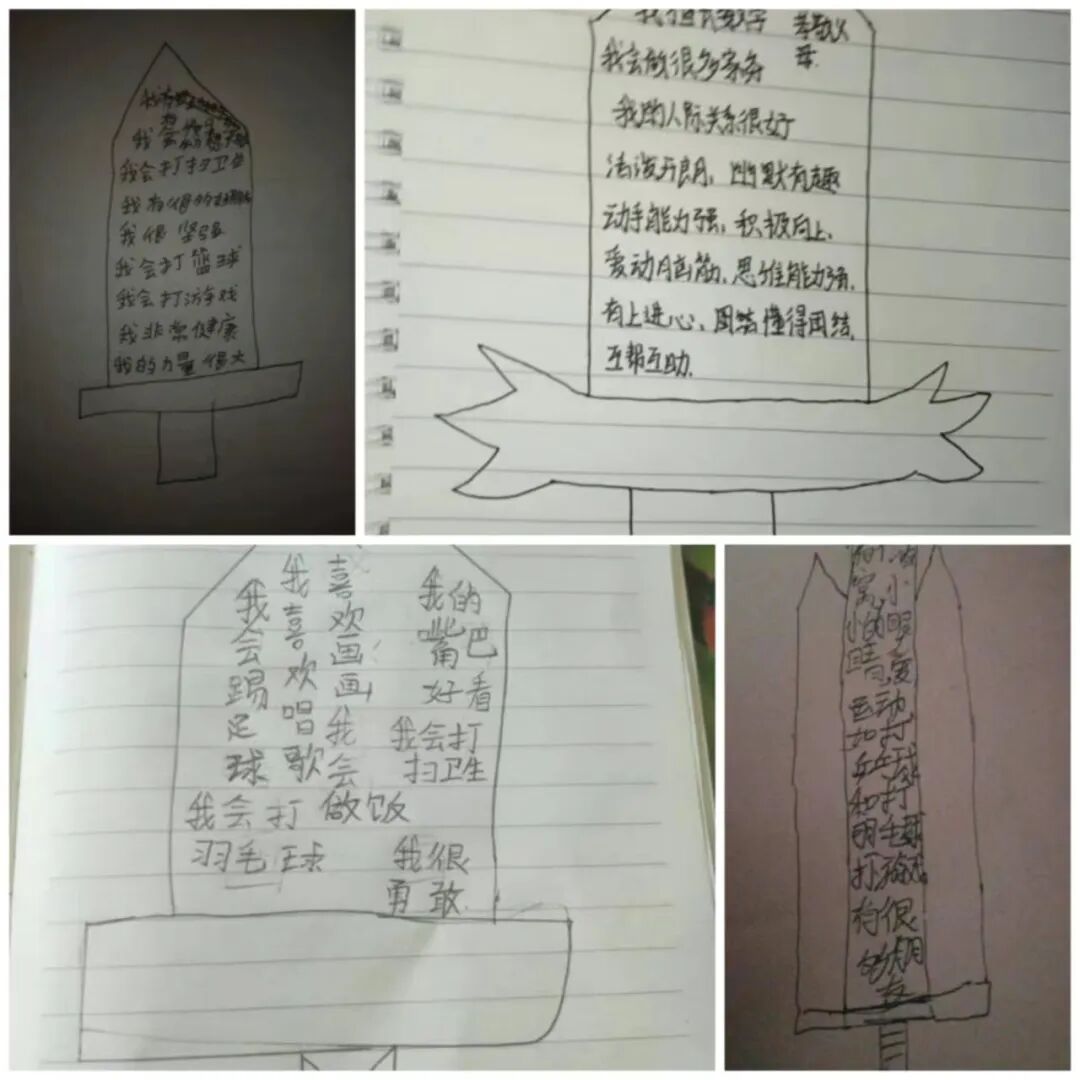 我会打扫卫生
我很坚强
我会打篮球
我会打游戏
我非常健康
我的力量很大
我会做很多家务
我的人际关系很好
活泼开朗，幽默有趣
动手能力强，积极向上、
爱动脑筋，思维能力强，
有上进心、团结懂得团结，
互帮互助。
我会踢足球
我喜欢唱歌
喜欢画画
我会做饭
我的嘴巴好看
我会打扫卫生
我会打羽毛球
我很勇敢
运动
如打
乒乓球
和打
羽毛球
打游戏
有很
的朋
友